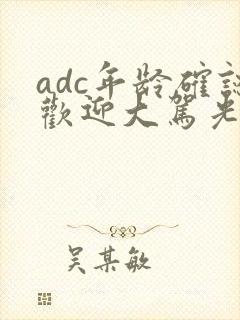 adc年龄確認
歡迎大駕光
吴某敏